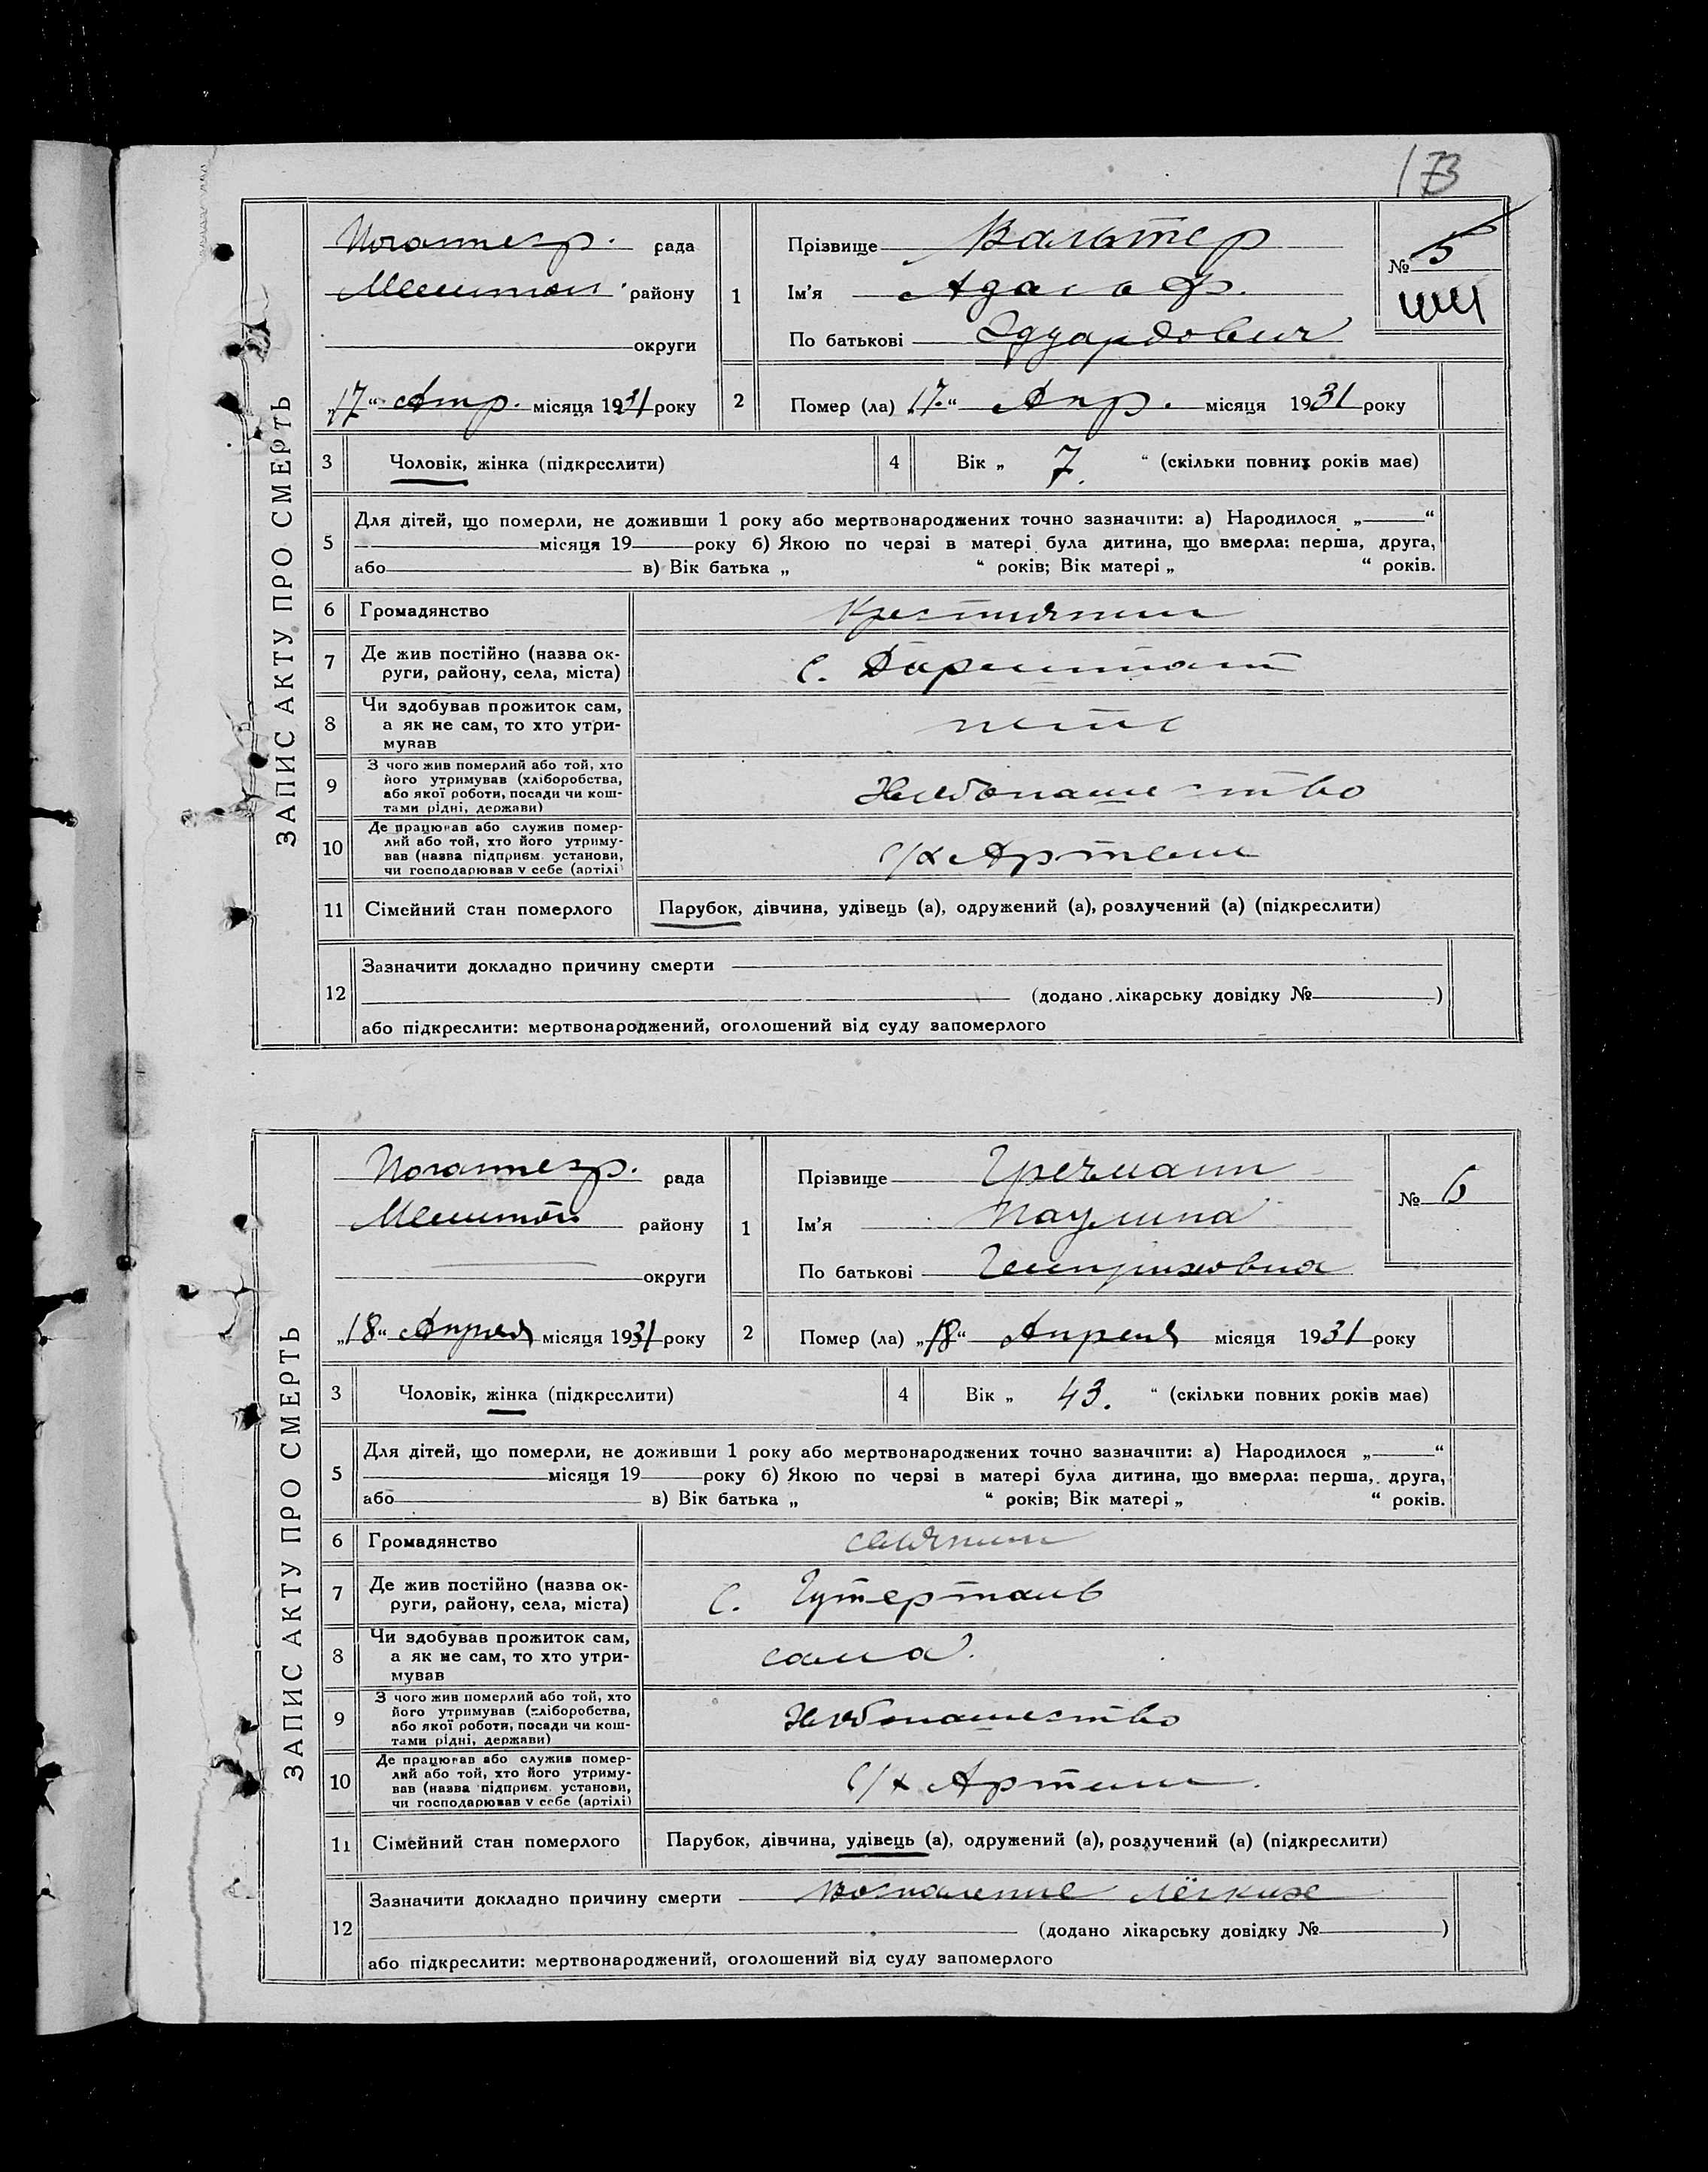 173
ЗАПИС АКТУ ПРО СМЕРТЬ
рада
району
округи
„17“ Апр. місяця 1931 року
1
Прізвище Вальтер
Ім'я Адальф.
По батькові Эдуардович
№ 5
2
Помер (ла) „17“ Апр. місяця 1931 року
3
Чоловік, жінка (підкреслити)
4
Вік „ 7. “ (скільки повних років має)
5
Для дітей, що померли, не доживши 1 року або мертвонароджених точно зазначити: а) Народилося „ “
місяця 19 року б) Якою по черзі в матері була дитина, що вмерла: перша, друга,
або в) Вік батька „ “ років; Вік матері „ “ років.
6
Громадянство
7
Де жив постійно (назва ок-
руги, району, села, міста)
с.
8
Чи здобував прожиток сам,
а як не сам, то хто утри-
мував
9
З чого жив померлий або той, хто
його утримував (хліборобства,
або якої роботи, посади чи кош-
тами рідні, держави)
Хлебопашество
10
Де працював або служив помер-
лий або той, хто його утриму-
вав (назва підприєм. установи,
чи господарював у себе (артілі)
с/х Артели
11
Сімейний стан померлого
Парубок, дівчина, удівець (а), одружений (а), розлучений (а) (підкреслити)
12
Зазначити докладно причину смерти
(додано лікарську довідку № )
або підкреслити: мертвонароджений, оголошений від суду запомерлого
ЗАПИС АКТУ ПРО СМЕРТЬ
рада
району
округи
„18“ Апреля місяця 1931 року
1
Прізвище Гречманн
Ім'я Паулина
По батькові Генриховна
№ 6
2
Помер (ла) „18“ Апреля місяця 1931 року
3
Чоловік, жінка (підкреслити)
4
Вік „ 43. “ (скільки повних років має)
5
Для дітей, що померли, не доживши 1 року або мертвонароджених точно зазначити: а) Народилося „ “
місяця 19 року б) Якою по черзі в матері була дитина, що вмерла: перша, друга,
або в) Вік батька „ “ років; Вік матері „ “ років.
6
Громадянство
селянин
7
Де жив постійно (назва ок-
руги, району, села, міста)
с. Гутерталь
8
Чи здобував прожиток сам,
а як не сам, то хто утри-
мував
сама.
9
З чого жив померлий або той, хто
його утримував (хліборобства,
або якої роботи, посади чи кош-
тами рідні, держави)
Хлебопашество
10
Де працював або служив помер-
лий або той, хто його утриму-
вав (назва підприєм. установи,
чи господарював у себе (артілі)
с/х Артели.
11
Сімейний стан померлого
Парубок, дівчина, удівець (а), одружений (а), розлучений (а) (підкреслити)
12
Зазначити докладно причину смерти Воспаление лёгких
(додано лікарську довідку № )
або підкреслити: мертвонароджений, оголошений від суду запомерлого